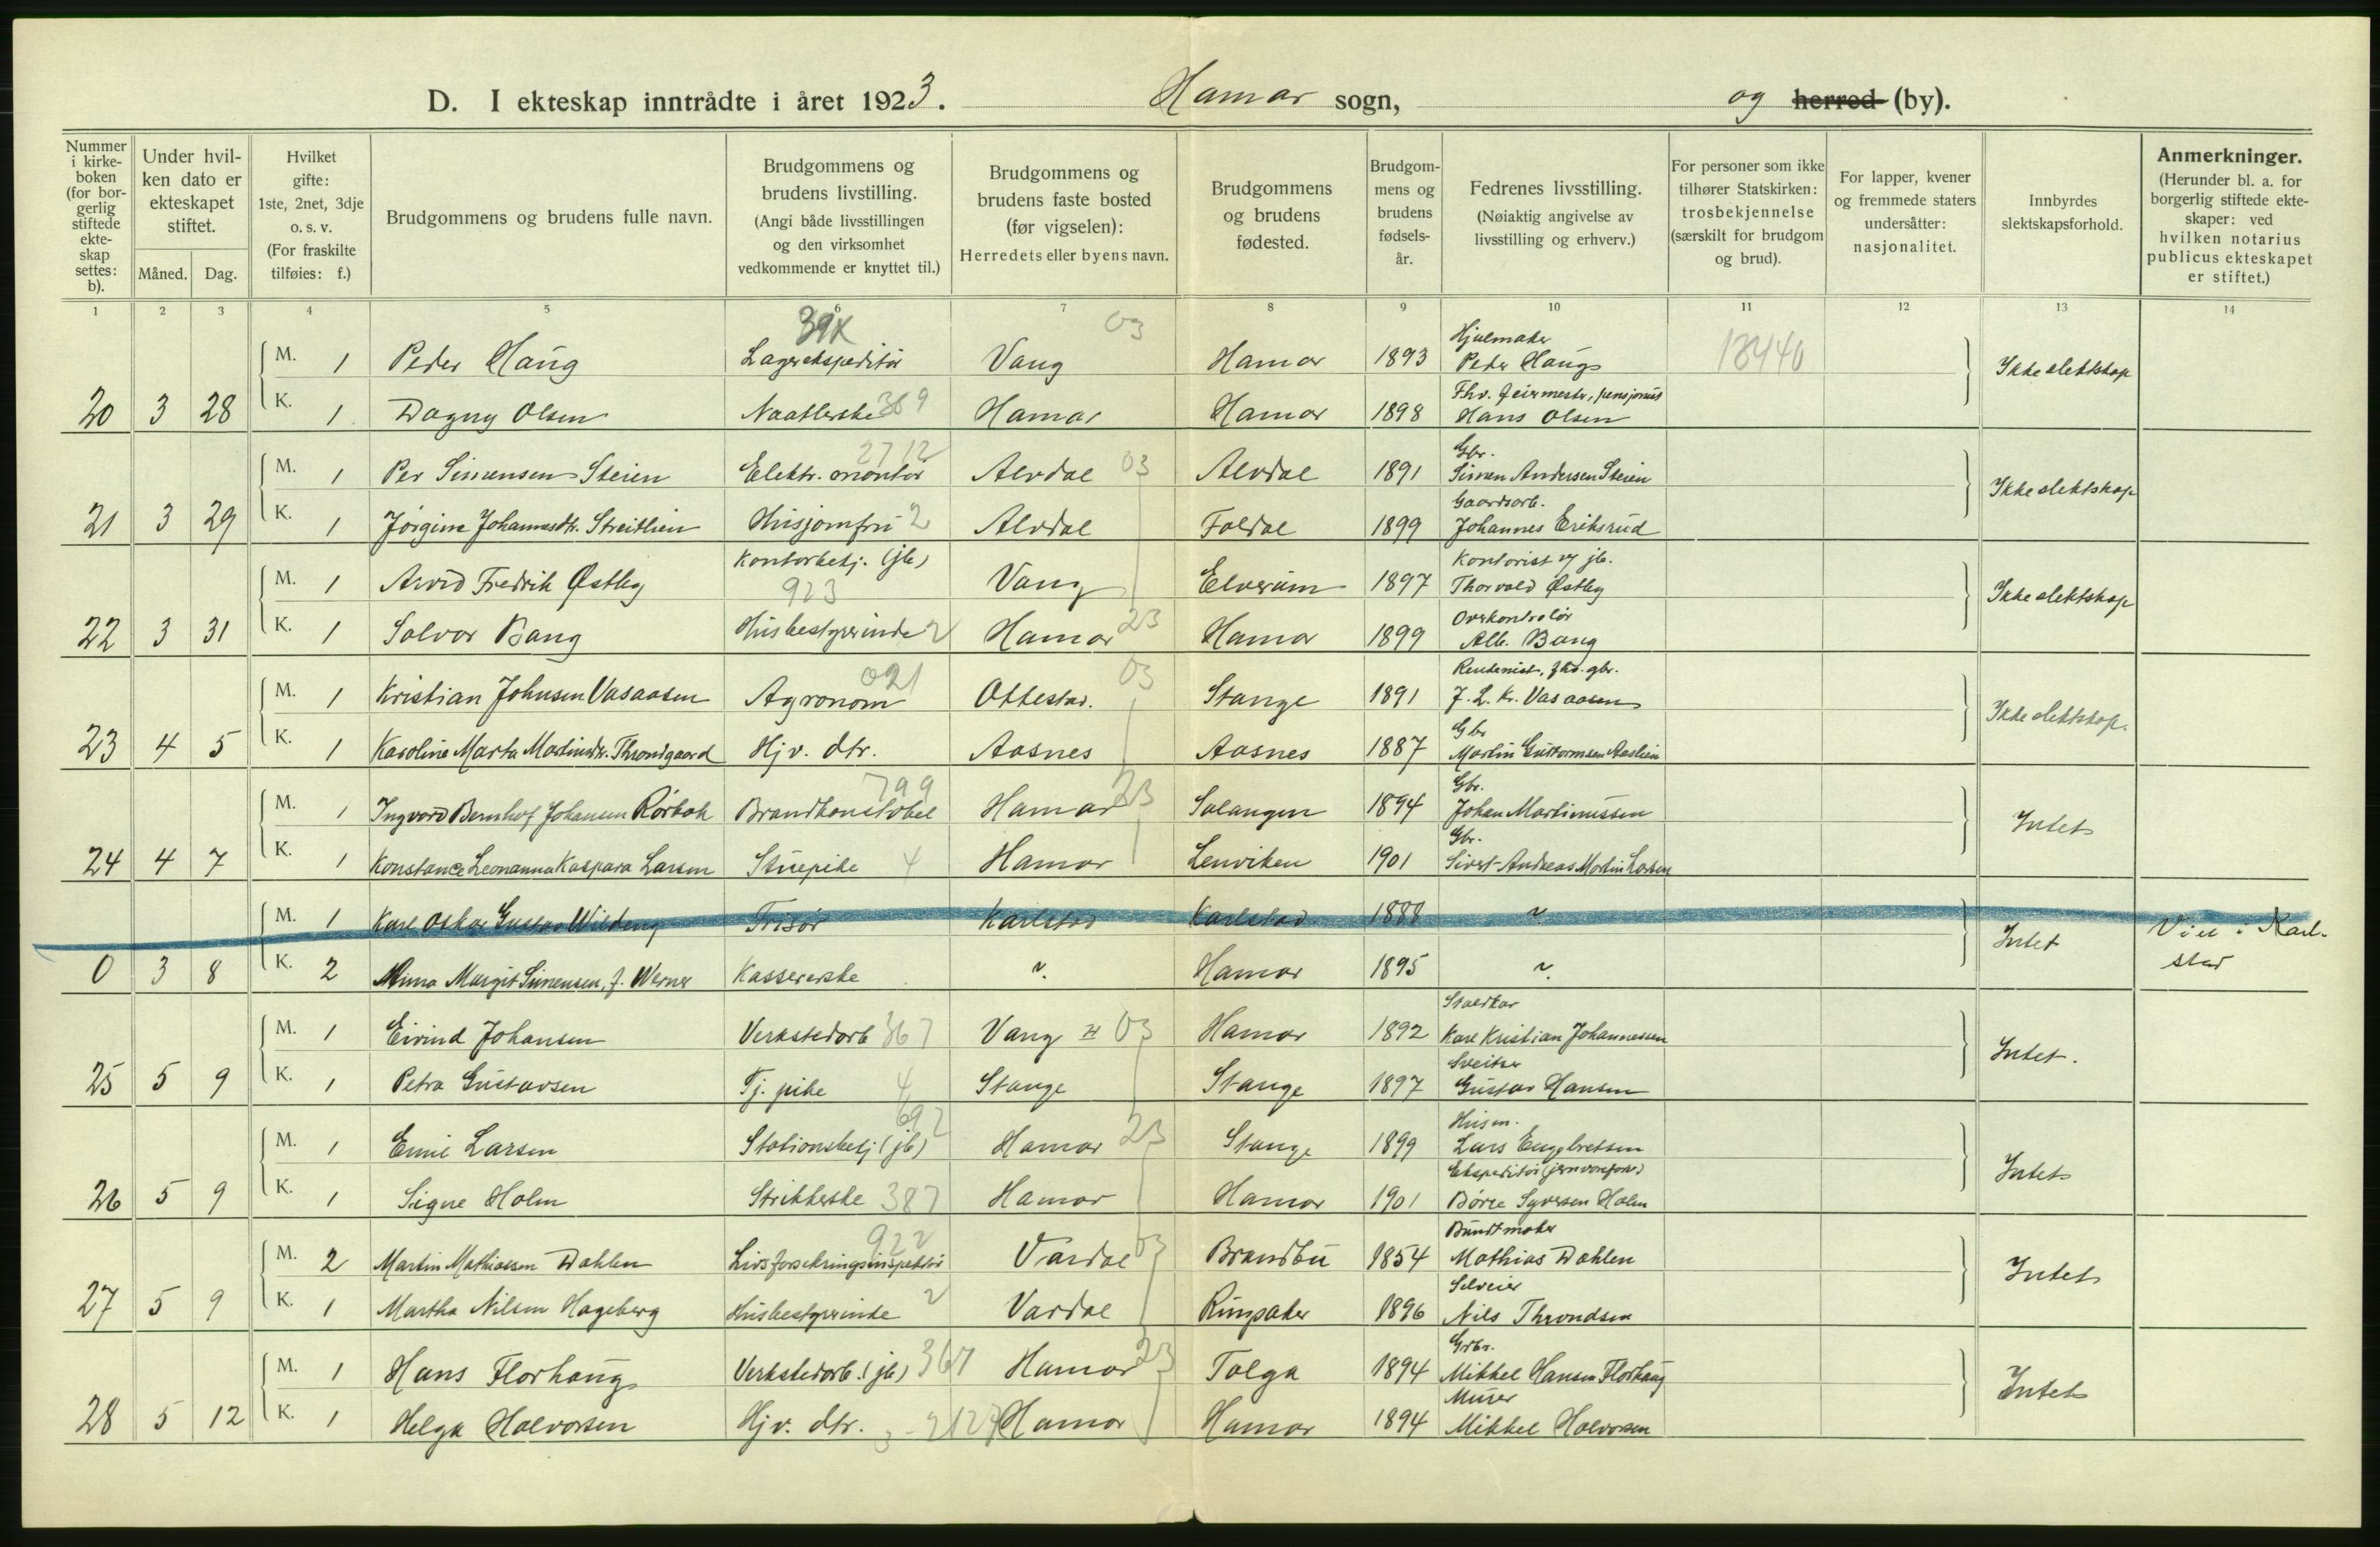 D. I ekteskap inntrådte i året 1923. Hamar sogn, og herred (by).
Nummer i kirkeboken (for borgerlig stiftede ekteskap settes: b).
Under hvilken dato er ekteskapet stiftet.
Måned. Dag.
Hvilket gifte: 1ste, 2net, 3dje o. s. v. (For fraskilte tilføies: f.)
Brudgommens og brudens fulle navn.
Brudgommens og brudens livstilling. (Angi både livsstillingen og den virksomhet vedkommende er knyttet til.)
Brudgommens og brudens faste bosted (før vigselen): Herredets eller byens navn.
Brudgommens og brudens fødested.
Brudgommens og brudens fødselsår.
Fedrenes livsstilling. (Nøiaktig angivelse av livsstilling og erhverv.)
For personer som ikke tilhører Statskirken: trosbekjennelse (særskilt for brudgom og brud).
For lapper, kvener og fremmede staters undersåtter: nasjonalitet.
Innbyrdes slektskapsforhold.
Anmerkninger. (Herunder bl. a. for borgerlig stiftede ekteskaper: ved hvilken notarius publicus ekteskapet er stiftet.)
1 2 3 4 5 6 7 8 9 10 11 12 13 14
39K 03 Hjulmaker
M. 1 Peder Haug Lagerekspeditør Vang Hamar 1893 Peder Haug 18440 Ikke slektskap
Fhv. feiermestr, pensjonist
20 3 28 K. 1 Dagny Olsen Naatlerske 369 Hamar Hamar 1898 Hans Olsen
2712 Gbr.
M. 1 Per Simensen Steien Elektr. montør Alvdal 03 Alvdal 1891 Simen Andersen Steien Ikke slektskap
Gaardsarb.
21 3 29 K. 1 Jørgine Johannesdtr. Streitlien Husjomfru 2 Alvdal Foldal 1899 Johannes Eriksrud
Kontorbetj. (jb) Kontorist v/ jb.
M. 1 Arvid Fredrik Østby 923 Vang Elverum 1897 Thorvald Østby Ikke slektskap
Overkontrolør
22 3 31 K. 1 Solvor Bang Husbestyrerinde 2 Hamar 23 Hamar 1899 Alb. Bang
021 03 Rentenist, fhv. gbr.
M. 1 Kristian Johnsen Vasaasen Agronom Ottestad. Stange 1891 J. L. Kr. Vasaasen Ikke slektskap.
Gbr
23 4 5 K. 1 Karoline Marta Martinsdtr. Throndgaard Hjv. dtr. Aasnes Aasnes 1887 Martin Guttormsen Aaslien
799 23 Gbr.
M. 1 Ingvard Bernhof Johansen Rørbak Brandkonstabel Hamar Salangen 1894 Johan Martinussen Intet
Gbr.
24 4 7 K. 1 Konstance Leonanna Kaspara Larsen Stuepike 4 Hamar Lenviken 1901 Sivert Andreas Martin Larsen
M. 1 Karl Oskar Gustav Wildeng Frisør Karlstad Karlstad 1888 ? Intet Viet i Karlstad
0 3 8 K. 2 Mina Margit Simensen, f. Werner Kassererske ?. Hamar 1895 ?.
Staldkar
M. 1 Eivind Johansen Verkstedarb 367 Vang H 03 Hamar 1892 Karl Kristian Johannessen Intet.
Sveitser
25 5 9 K. 1 Petra Gustavsen Tj. pike 4 Stange Stange 1897 Gustav Hansen
692 Husm.
M. 1 Emil Larsen Stationsbetj (jb) Hamar 23 Stange 1899 Lars Engebretsen Intet
Ekspeditør (jernvareforr.)
26 5 9 K. 1 Signe Holm Strikkerske 387 Hamar Hamar 1901 Børre Syversen Holm
922 Buntmaker
M. 2 Martin Mathiasen Dahlen Livsforsikringsinspektør Vardal 03 Brandbu 1854 Mathias Dahlen Intet
Selveier
27 5 9 K. 1 Martha Nilsen Hageberg Husbestyrerinde 2 Vardal Ringsaker 1896 Nils Throndsen
Grbr.
M. 1 Hans Florhaug Verkstedarb. (jb) 367 Hamar 23 Tolga 1894 Mikkel Hansen Florhaug Intet
Murer
28 5 12 K. 1 Helga Halvorsen Hjv. dtr. Hamar Hamar 1894 Mikkel Halvorsen